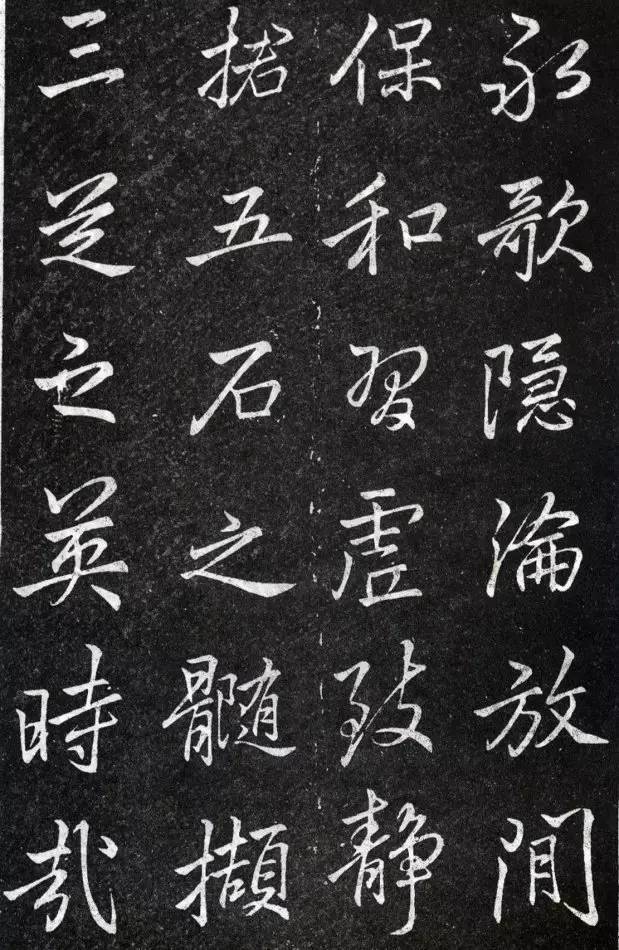 永歌隱淪放閒
保和習虛致靜
捃五石之髓擷
三芝之英時哉